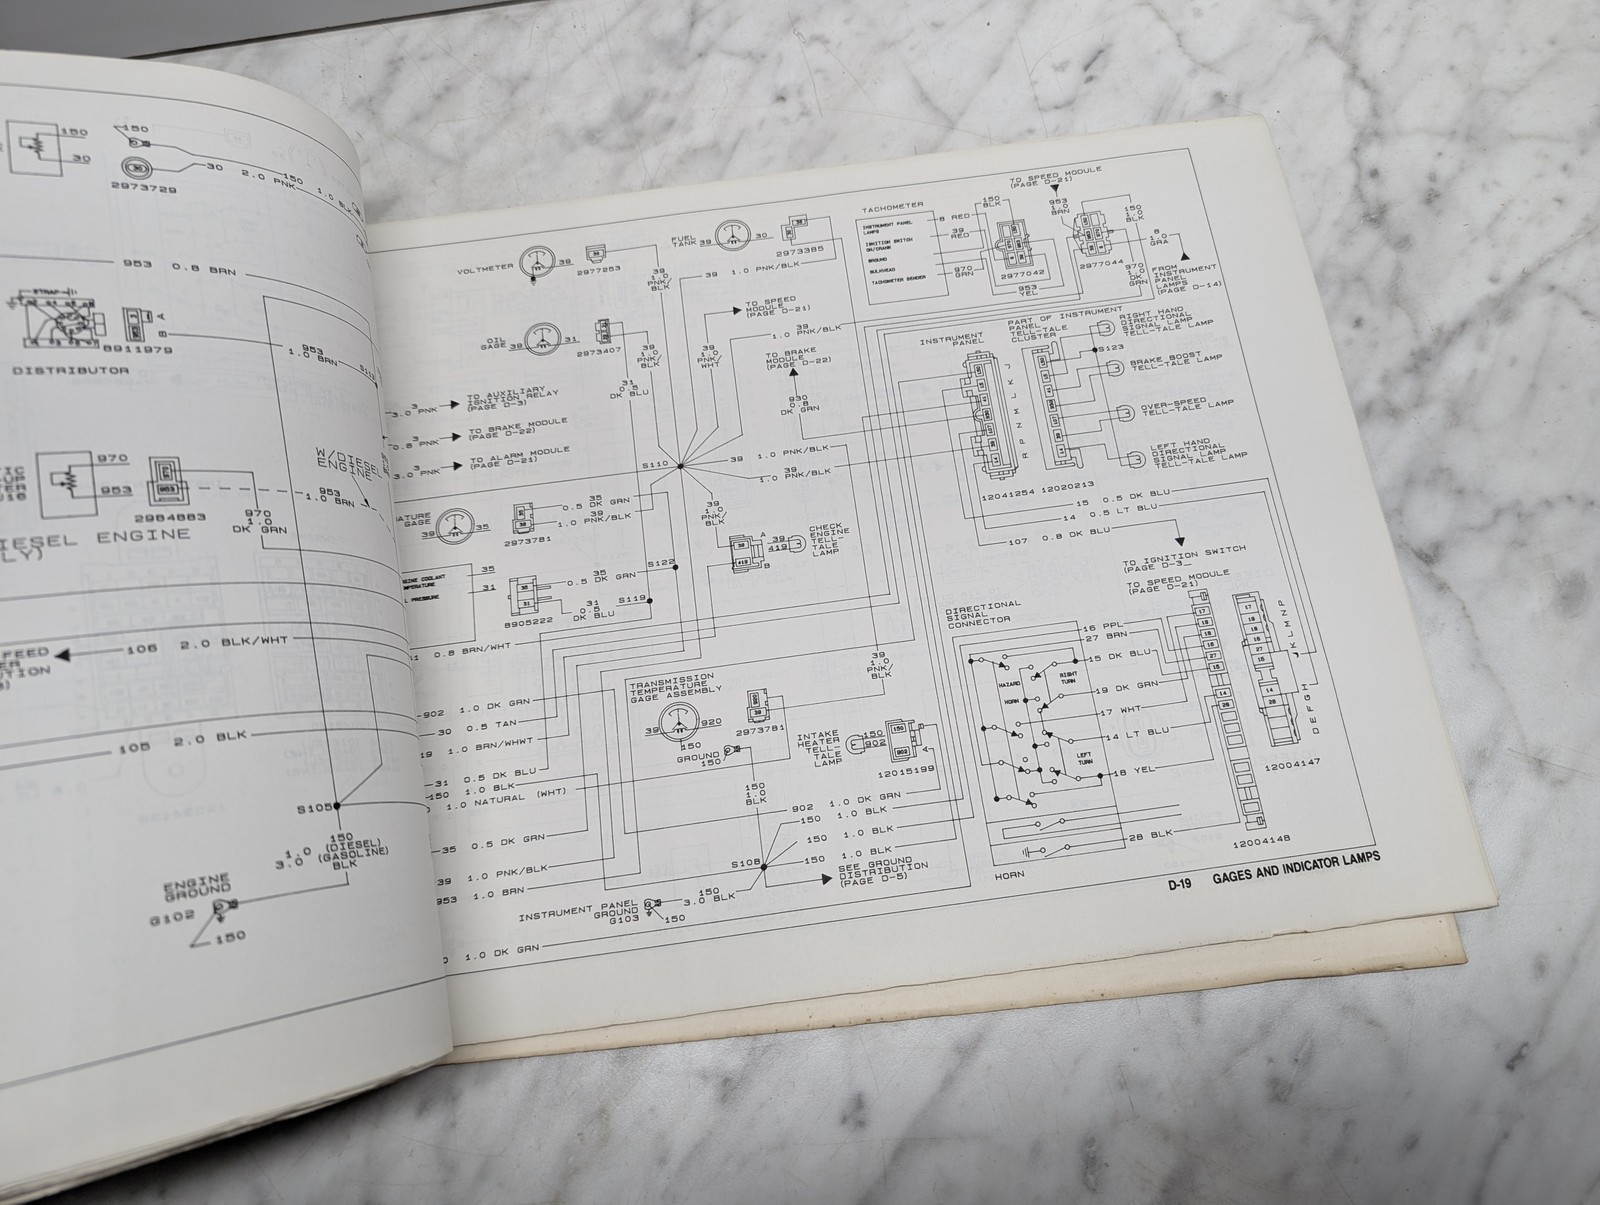 150
30
150
30
2973729
150 1.0 BLK
2.0 PNK
953 0.8 BRN
A
B
8911979
DISTRIBUTOR
953
1.0 BRN
W/DIESEL
ENGINE
970
953
2984883
953
1.0 BRN
970
1.0
DK GRN
DIESEL ENGINE
106 2.0 BLK/WHT
FEED
105 2.0 BLK
S105
150
1.0 (DIESEL)
3.0 (GASOLINE)
BLK
ENGINE
GROUND
G102
150
VOLTMETER
39
2977253
39
1.0
PNK/
BLK
FUEL
TANK
39
30
2973385
39 1.0 PNK/BLK
OIL
GAGE
39
31
2973407
39
1.0
PNK/
BLK
31
0.5
DK BLU
39
1.0
PNK/
WHT
TO SPEED
MODULE
(PAGE D-21)
39
1.0 PNK/BLK
TO BRAKE
MODULE
(PAGE D-22)
930
0.8
DK GRN
3
3.0 PNK
TO AUXILIARY
IGNITION RELAY
(PAGE D-3)
0.8 PNK
TO BRAKE MODULE
(PAGE D-22)
3
3.0 PNK
TO ALARM MODULE
(PAGE D-21)
S110
39 1.0 PNK/BLK
39
1.0 PNK/BLK
39
1.0
PNK/
BLK
GAGE
39
35
2973781
35
0.5 DK GRN
39
1.0 PNK/BLK
39
419
A
B
39
419
CHECK
ENGINE
TELL-
TALE
LAMP
35
31
35
31
8905222
35
0.5 DK GRN
S122
31
0.5
DK BLU
S119
0.8 BRN/WHT
TACHOMETER
INSTRUMENT PANEL
LAMPS
IGNITION SWITCH
ON/CRANK
GROUND
BULKHEAD
TACHOMETER SENDER
8 RED
39
RED
970
GRN
150
BLK
2977042
953
YEL
TO SPEED MODULE
(PAGE D-21)
953
1.0
BRN
150
1.0
BLK
2977044
8
1.0
GRA
970
1.0
DK
GRN
FROM
INSTRUMENT
PANEL
LAMPS
(PAGE D-14)
INSTRUMENT
PANEL
PART OF INSTRUMENT
PANEL
TELL-TALE
CLUSTER
R P N M L K J
12041254 12020213
RIGHT HAND
DIRECTIONAL
SIGNAL LAMP
TELL-TALE LAMP
S123
BRAKE BOOST
TELL-TALE LAMP
OVER-SPEED
TELL-TALE LAMP
LEFT HAND
DIRECTIONAL
SIGNAL LAMP
TELL-TALE LAMP
15 0.5 DK BLU
14 0.5 LT BLU
107 0.8 DK BLU
TO IGNITION SWITCH
(PAGE D-3_
TO SPEED MODULE
(PAGE D-21)
DIRECTIONAL
SIGNAL
CONNECTOR
16 PPL
27 BRN
15 DK BLU
19 DK GRN
17 WHT
14 LT BLU
18 YEL
28 BLK
HAZARD
HORN
RIGHT
TURN
LEFT
TURN
HORN
17
18
19
16
27
15
14
28
J K L M N P
D E F G H
12004147
12004148
902 1.0 DK GRN
30 0.5 TAN
1.0 BRN/WHWT
31 0.5 DK BLU
150 1.0 BLK
1.0 NATURAL (WHT)
35 0.5 DK GRN
39 1.0 PNK/BLK
953 1.0 BRN
1.0 DK GRN
TRANSMISSION
TEMPERATURE
GAGE ASSEMBLY
39
920
150
2973781
GROUND
150
39
1.0
PNK/
BLK
150
1.0
BLK
INTAKE
HEATER
TELL-
TALE
LAMP
150
902
150
902
12015199
902 1.0 DK GRN
150 1.0 BLK
150 1.0 BLK
150 1.0 BLK
S108
SEE GROUND
DISTRIBUTION
(PAGE D-5)
150
3.0 BLK
INSTRUMENT PANEL
GROUND
G103
150
D-19 GAGES AND INDICATOR LAMPS